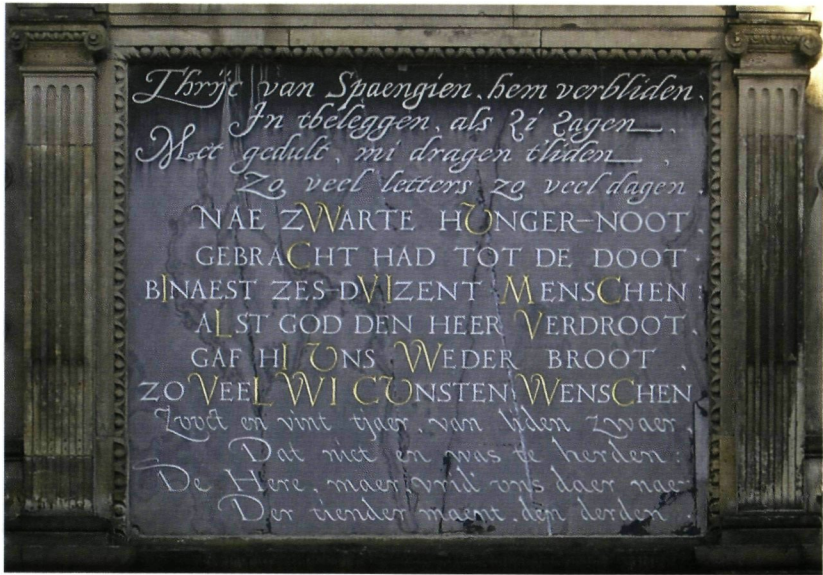 Thrijc van Spaengien, hem verbliden.
In tbeleggen, als Zi Zagen.
Met gedult, mi dragen tliden,
Zo veel letters zo veel dagen.
NAE ZWARTE HUNGER-NOOT.
GEBRACHT HAD TOT DE DOOT.
BINAEST ZES-DVIZENT MENSCHEN:
ALST GOD DEN HEER VERDROOT.
GAF HI UNS WEDER BROOT.
ZO VEEL WI CUNSTEN WENSCHEN
Zooct en vint tjaer, van liden zwaer,
Dat niet en was te herden:
De Here, maer vrid ons daer nae
Der tiender maent, den derden.